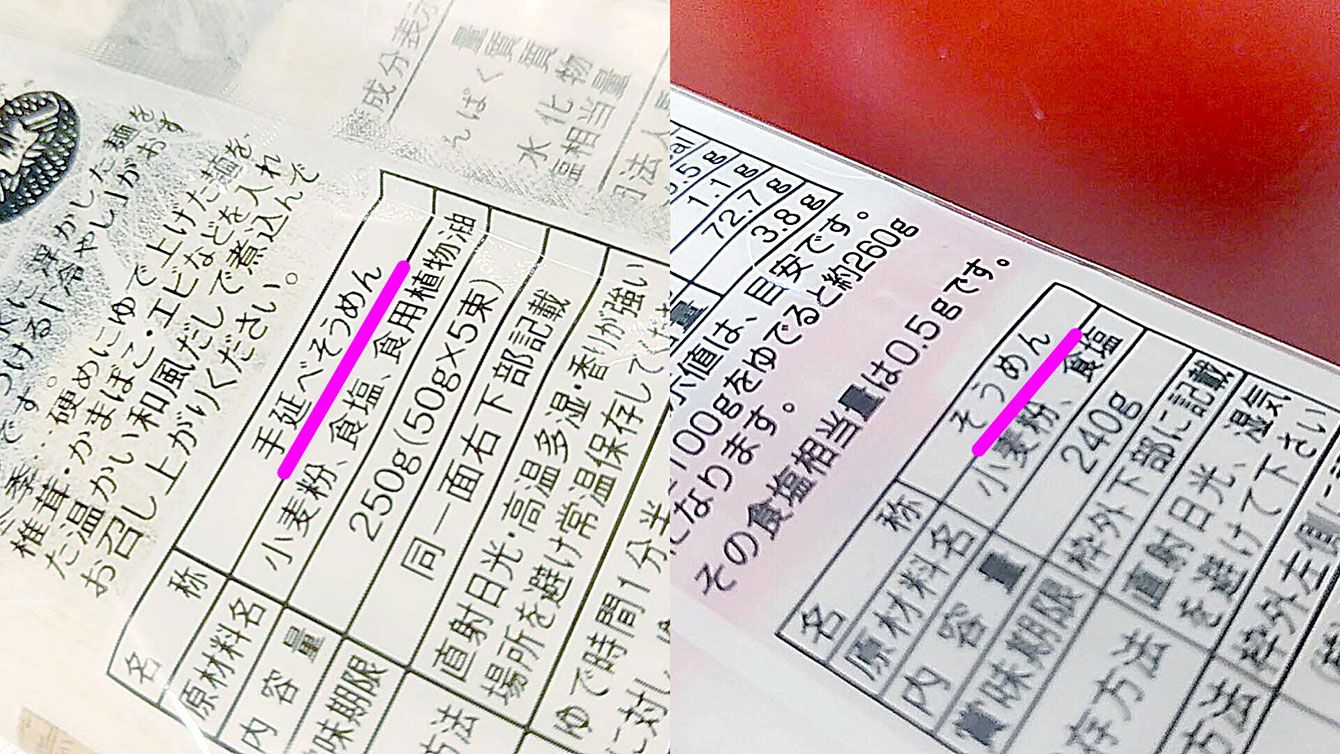 成分表示
量
んぱく質
質
水化物
塩相当量
に浮かした麺を
「冷やし」がお
つける
です。
季…硬めにゆで上げた麺を、
椎茸・かまぼこ・エビなどを入れ
た温かい和風だしで煮込んで
お召し上がりください。
名称 手延べそうめん
原材料名 小麦粉、食塩、食用植物油
内容量 250g(50g×5束)
味期限 同一面右下部記載
方法 直射日光・高温多湿・香りが強い
場所を避け常温保存して
ゆで時間1分半
に対し
.5g
1.1g
72.7g
3.8g
示値は、目安です。
100gをゆでると約260g
になります。
その食塩相当量は0.5gです。
名称 そうめん
原材料名 小麦粉、食塩
内容量 240g
賞味期限 枠外下部に記載
存方法 直射日光、湿気
を避けて下さい
方法 枠外左側に